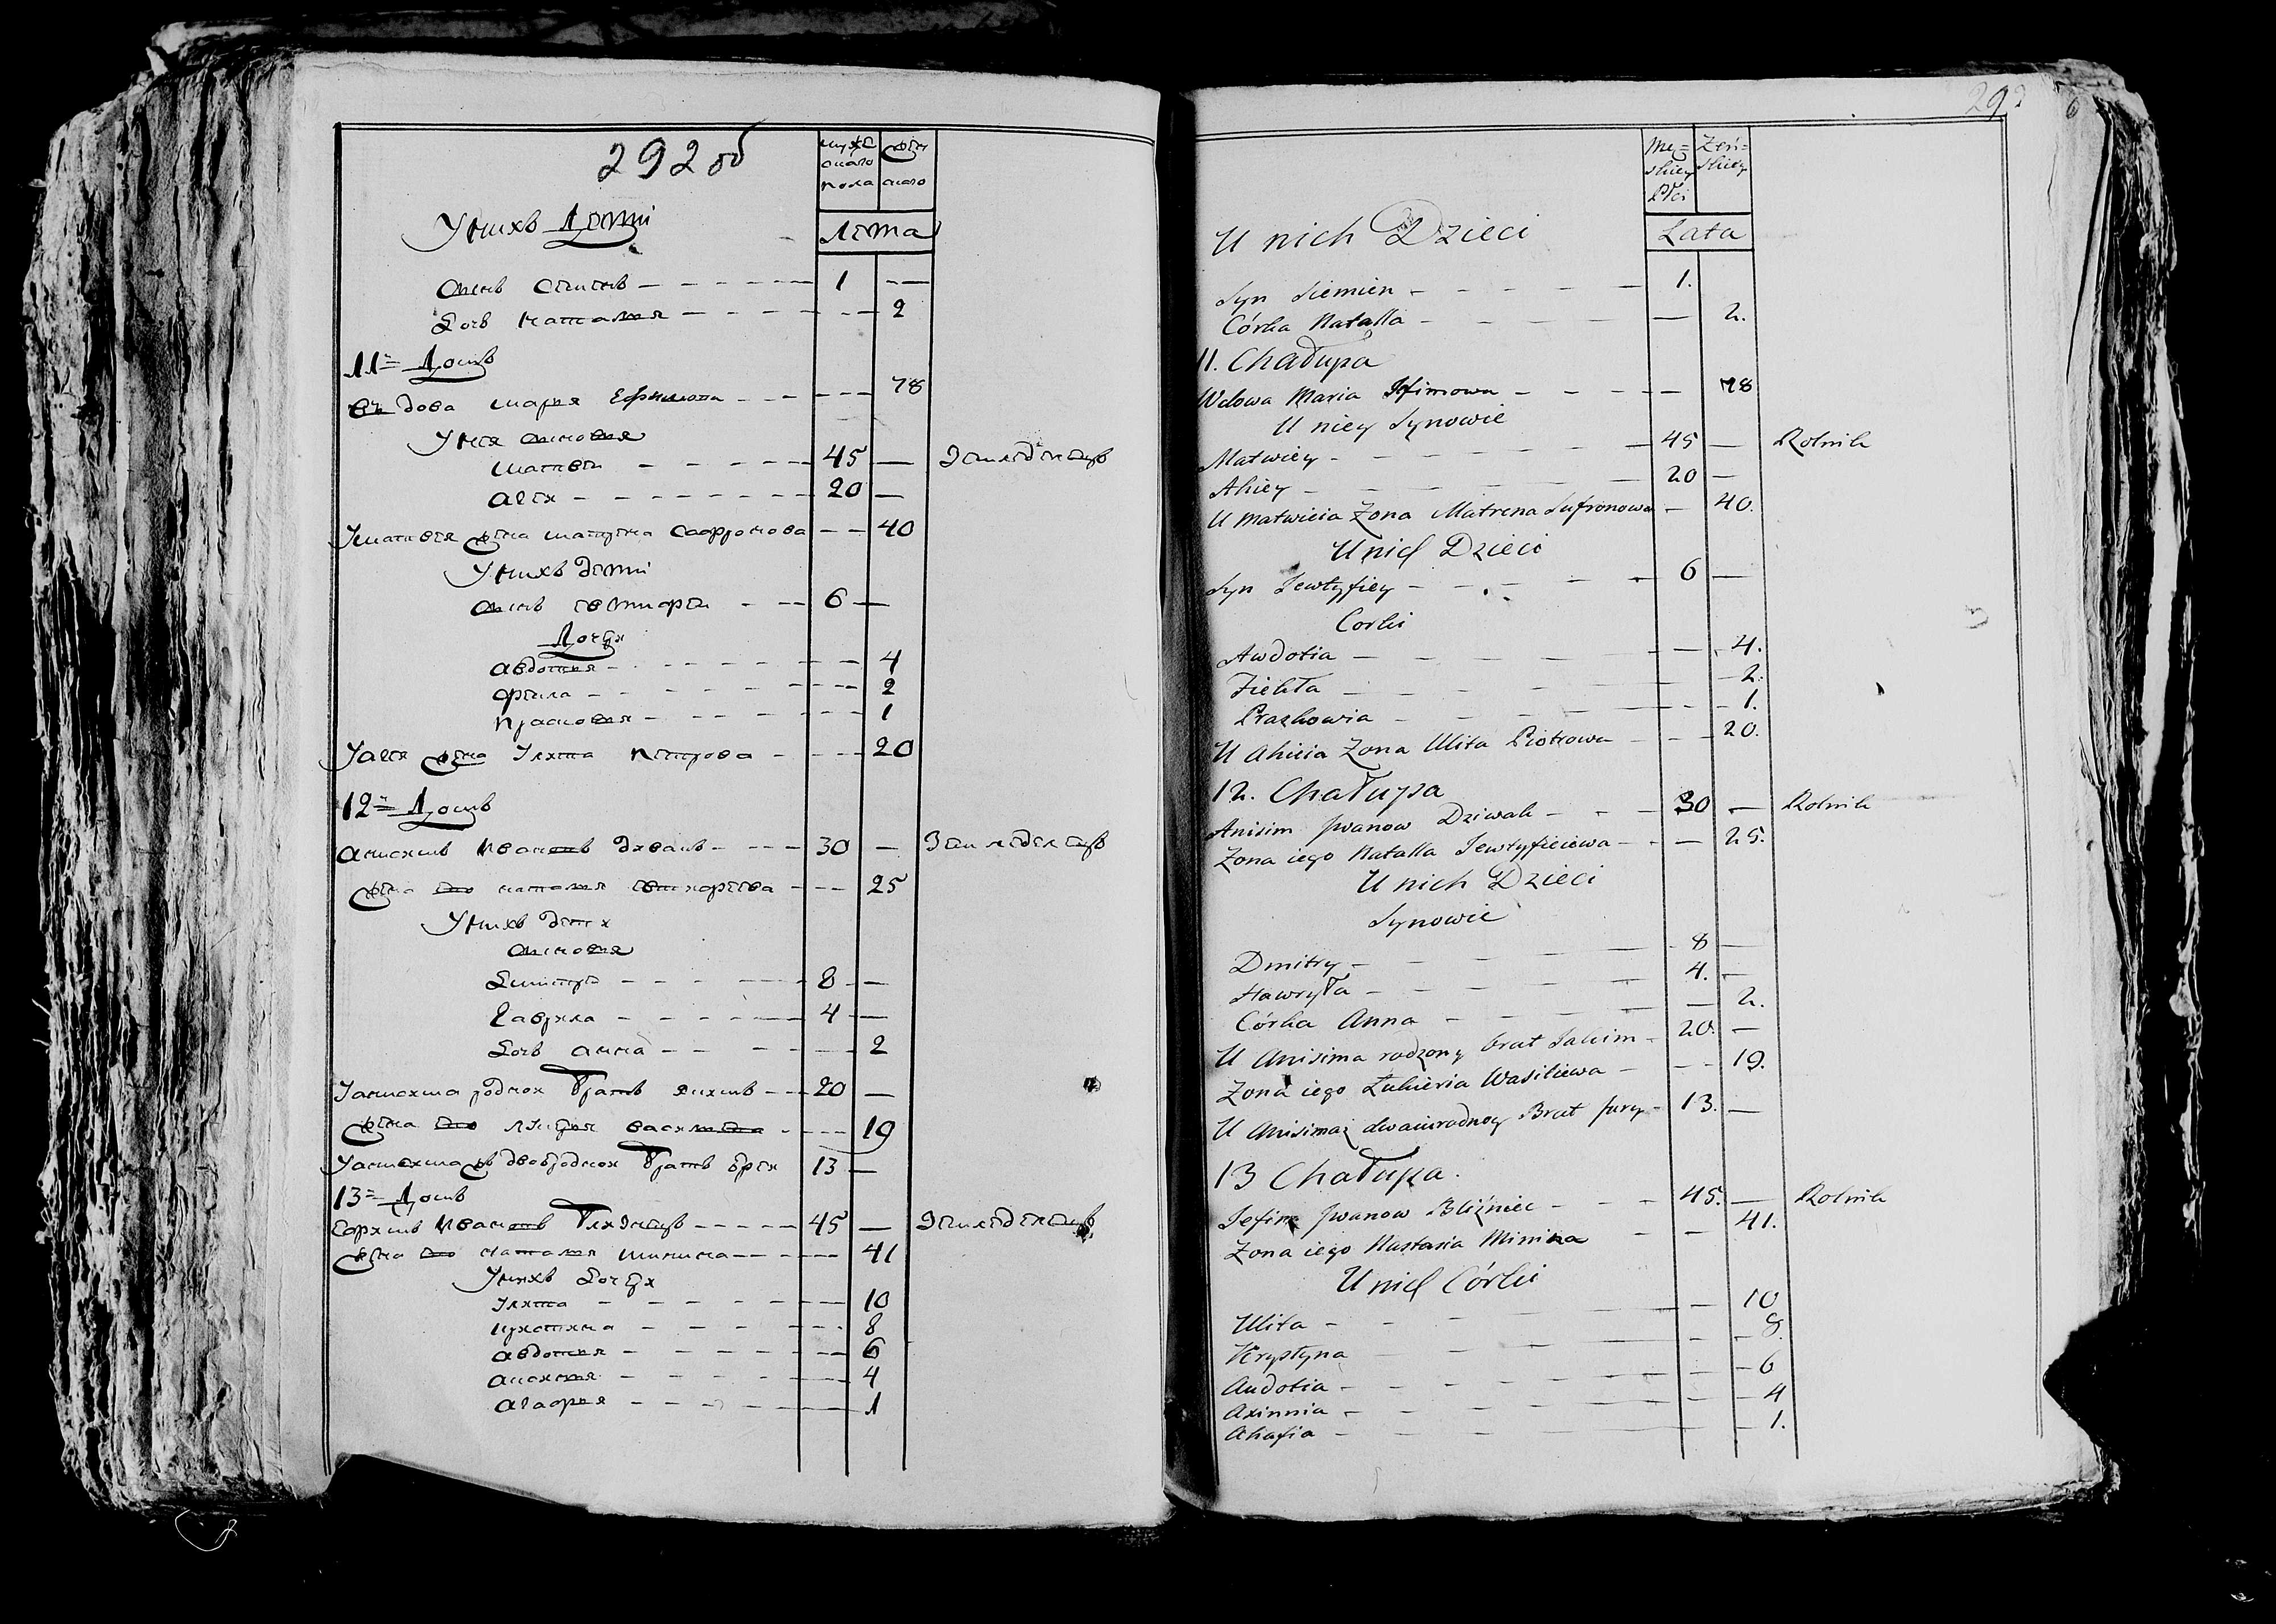 292 об
мужеского пола
женского
Лета
У них Дети
Сын Семен - 1 -
Дочь Наталия - - 2
11 й Домъ
Вдова Мария Ефимова - 78
У нея Сыновья
Матвеи - 45 - Земледелецъ
Агеи - 20 -
У Матвея жена Матрена Сафронова - 40
У нихъ дети
Сынъ Евтифеи - 6 -
Дочери
Авдотия - 4
Фекла - 2
Прасковия - 1
У Агея жена Улита Петрова - 20
12 й Домъ
Анисимъ Ивановъ Диваль - 30 - Земледелецъ
жена его Наталия Евтифеева - 25
У нихъ дети
Сыновья
Дмитреи - 8 -
Гаврила - 4 -
Дочь Анна - 2
У Анисима роднои братъ Якимъ - 20 -
жена его Лукерия Василиева - 19
У Анисима жъ двоюроднои братъ Юреи 13 -
13 й Домъ
Ефимъ Ивановъ Близнецъ - 45 - Земледелецъ
жена его Наталия Минина - 41
У нихъ Дочери
Улита - 10
Кристина - 8
Авдотия - 6
Аксиния - 4
Агафия - 1
292
6
Męskiey Płci
Żeńskiey
Lata
U nich Dzieci
Syn Siemien - 1.
Córka Natalla - 2.
11. Chałupa
Wdowa Maria Jefimowa - 78
U niey Synowie
Matwiey - 45 - Rolnik
Ahiey - 20 -
U Matwieia Zona Matrena Sufronowa - 40.
U nich Dzieci
Syn Jewtyfiey - 6 -
Corki
Awdotia - 4.
Fiekła - 2.
Praskowia - 1.
U Ahieia Zona Ulita Piotrowa - 20.
12. Chałupa
Anisim Iwanow Dziwal - 30 - Rolnik
Zona iego Natalla Jewtyfieiewa - 25.
U nich Dzieci
Synowie
Dmitry - 8 -
Hawryła - 4. -
Córka Anna - 2.
U Anisima rodzony brat Jakim - 20. -
Zona iego Łukieria Wasiliewa - 19.
U Anisimaż dwaiuradnoy Brat Jurey - 13. -
13 Chałupa.
Jefim Iwanow Bliźniec - 45. - Rolnik
Zona iego Nastasia Minina - 41.
U nich Córki
Ulita - 10
Krystyna - 8.
Audotia - 6
Axinnia - 4
Ahafia - 1.